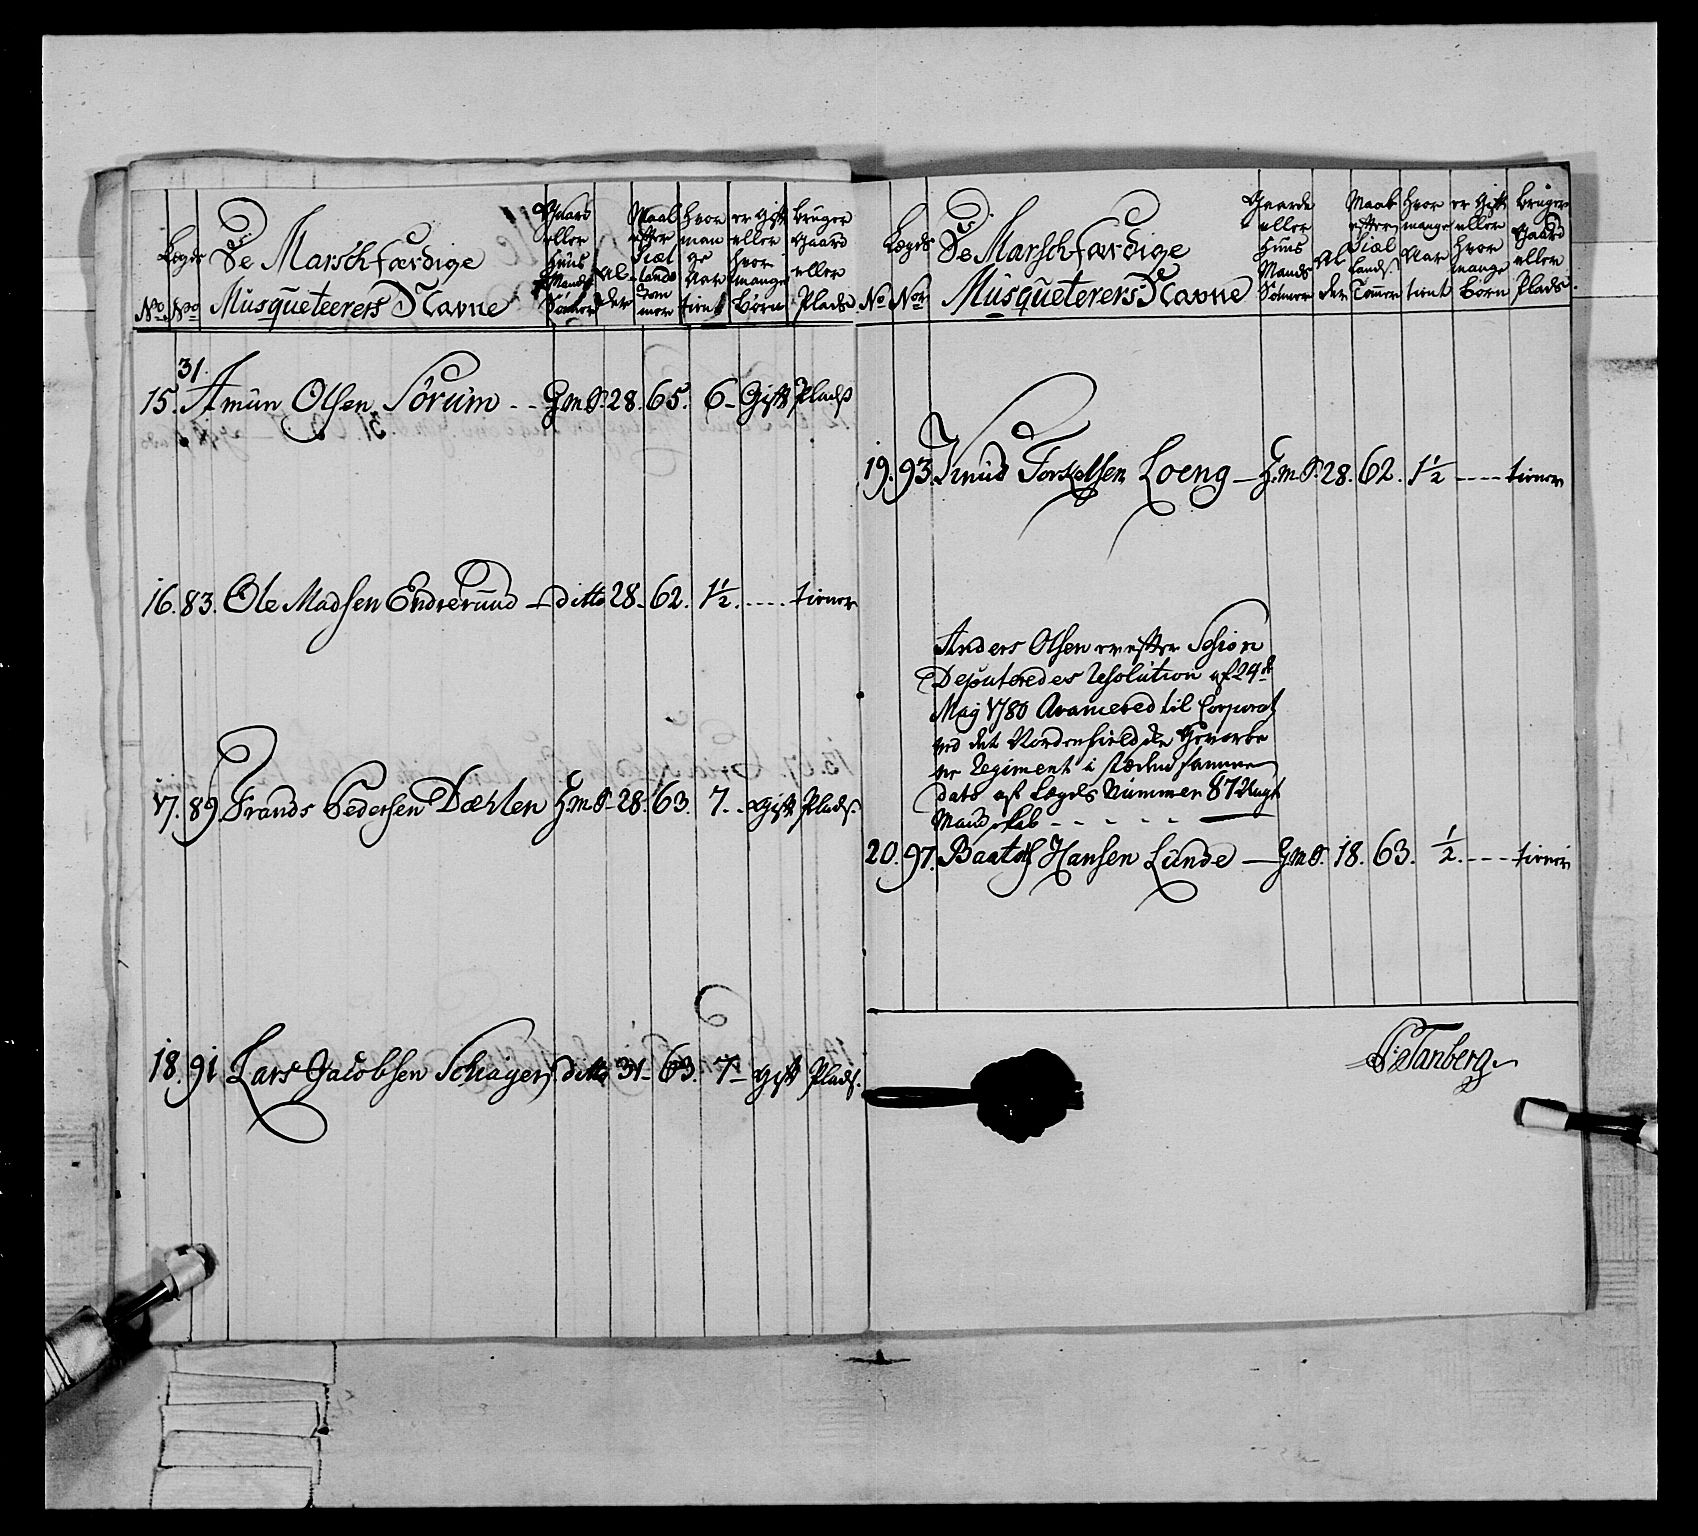 No. Legds No. De Marschfærdige Musqueteerers Navne Gaard eller Huus Mands Sønner Alder Maal efter Siæl lands Tommer hvor mange Aar tient er gift eller hvor mange Børn bruger Gaard eller Plads
15. 31. Amun Olsen Sörum - - G.m.S. 28. 65. 6 - Gift Plads
16. 83. Ole Madsen Endrerund - ditto 28. 62. 1½. - - - - tiener
17. 89. Frands Pedersen Dæhlen H.m.S. 28. 63. 7. - gift Plads.
18. 91. Lars Jacobsen ditto 31 - 63. 7 - gift Plads.
No. Legds No. De Marschfærdige Musqueterers Navne Gaards eller Huus Mands Sønner Alder Maal efter Siæl Lands Tommer hvor mange Aar tient er gift eller hvor mange Børn bruger Gaard eller Plads.
19. 93. Knud Torkelsen Loeng - H.m.S. 28. 62. 1½ - - - - tiener
Anders Olsen er efter Sesion
Deputeredes Resolution af 24de
May 1780 Avancered til Corporal
ved det Nordenfieldske Gevorbe
ne Regiment i steden samme
dato af Legds Nummer 87 Ungt
Mandskab - - - - -
20. 97. Hansen Lunde - G.m.S. 18. 63. ½. - - - tiener
Tanberg